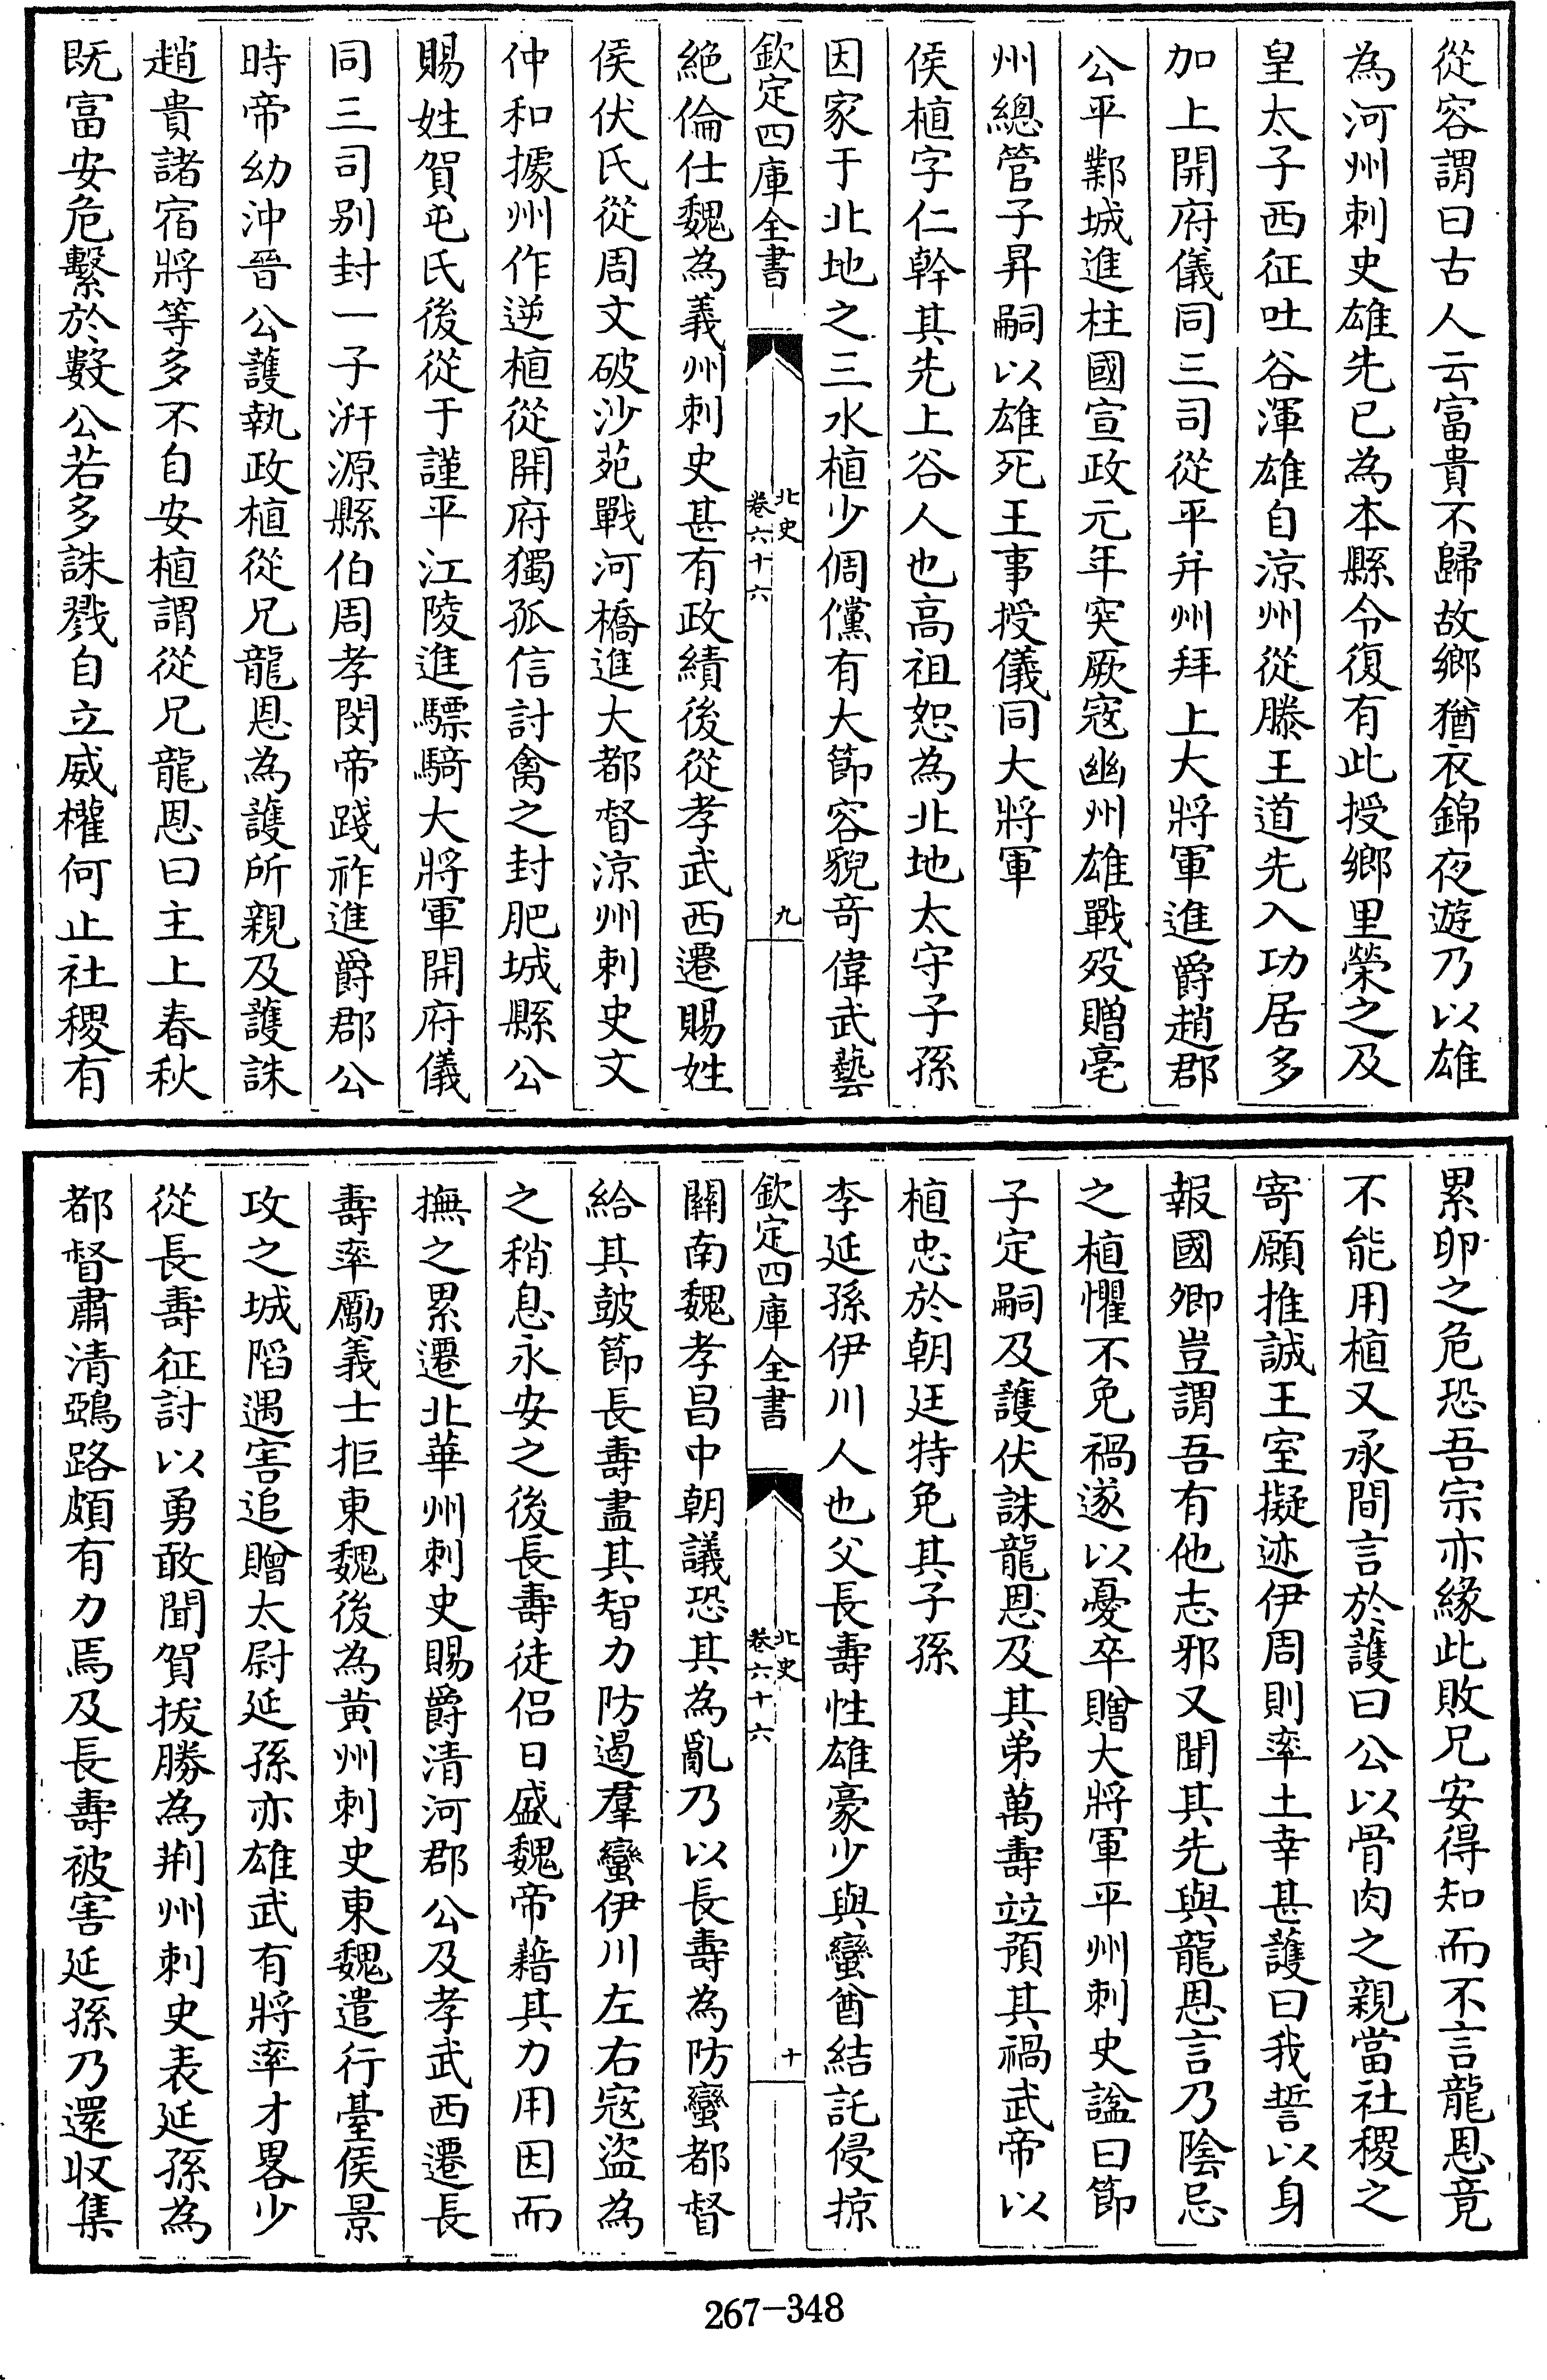 從容謂曰古人云富貴不歸故鄉猶衣錦夜遊乃以雄
為河州刺史雄先已為本縣令復有此授鄉里榮之及
皇太子西征吐谷渾雄自涼州從滕王道先入功居多
加上開府儀同三司從平并州拜上大將軍進爵趙郡
公平鄴城進柱國宣政元年突厥寇幽州雄戰歿贈亳
州總管子昇嗣以雄死王事授儀同大將軍
侯植字仁幹其先上谷人也高祖恕為北地太守子孫
因家于北地之三水植少倜儻有大節容貌竒偉武藝
欽定四庫全書
北史
卷六十六
九
絶倫仕魏為義州刺史甚有政績後從孝武西遷賜姓
侯伏氏從周文破沙苑戰河橋進大都督涼州刺史文
仲和據州作逆植從開府獨孤信討禽之封肥城縣公
賜姓賀屯氏後從于謹平江陵進驃騎大將軍開府儀
同三司别封一子汧源縣伯周孝閔帝踐祚進爵郡公
時帝幼沖晉公護執政植從兄龍恩為護所親及護誅
趙貴諸宿將等多不自安植謂從兄龍恩曰主上春秋
既富安危繫於數公若多誅戮自立威權何止社稷有
累卵之危恐吾宗亦緣此敗兄安得知而不言龍恩竟
不能用植又承間言於護曰公以骨肉之親當社稷之
寄願推誠王室擬迹伊周則率土幸甚護曰我誓以身
報國卿豈謂吾有他志邪又聞其先與龍恩言乃陰忌
之植懼不免禍遂以憂卒贈大將軍平州刺史諡曰節
子定嗣及護伏誅龍恩及其弟萬壽竝預其禍武帝以
植忠於朝廷特免其子孫
李延孫伊川人也父長壽性雄豪少與蠻酋結託侵掠
欽定四庫全書
北史
卷六十六
十
關南魏孝昌中朝議恐其為亂乃以長壽為防蠻都督
給其鼓節長壽盡其智力防遏羣蠻伊川左右寇盗為
之稍息永安之後長壽徒侣日盛魏帝藉其力用因而
撫之累遷北華州刺史賜爵清河郡公及孝武西遷長
壽率勵義士拒東魏後為黄州刺史東魏遣行臺侯景
攻之城陷遇害追贈太尉延孫亦雄武有將率才畧少
從長壽征討以勇敢聞賀拔勝為荆州刺史表延孫為
都督肅清鵶路頗有力焉及長壽被害延孫乃還收集
267-348